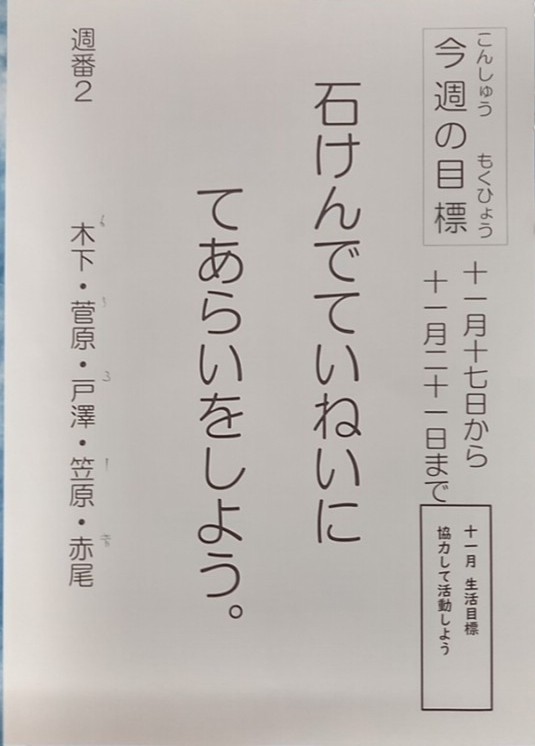 こんしゅう もくひょう
今週の目標
十一月十七日から
十一月二十一日まで
十一月 生活目標
協力して活動しよう
石けんでていねいに
てあらいをしよう。
週番2 木下・菅原・戸澤・笠原・赤尾